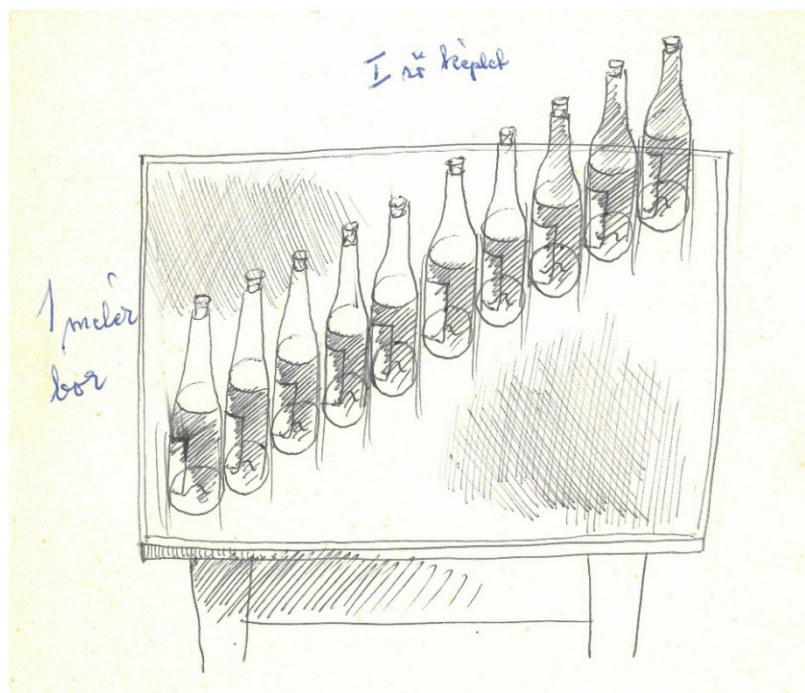 I ső képlet
1 méter
bor